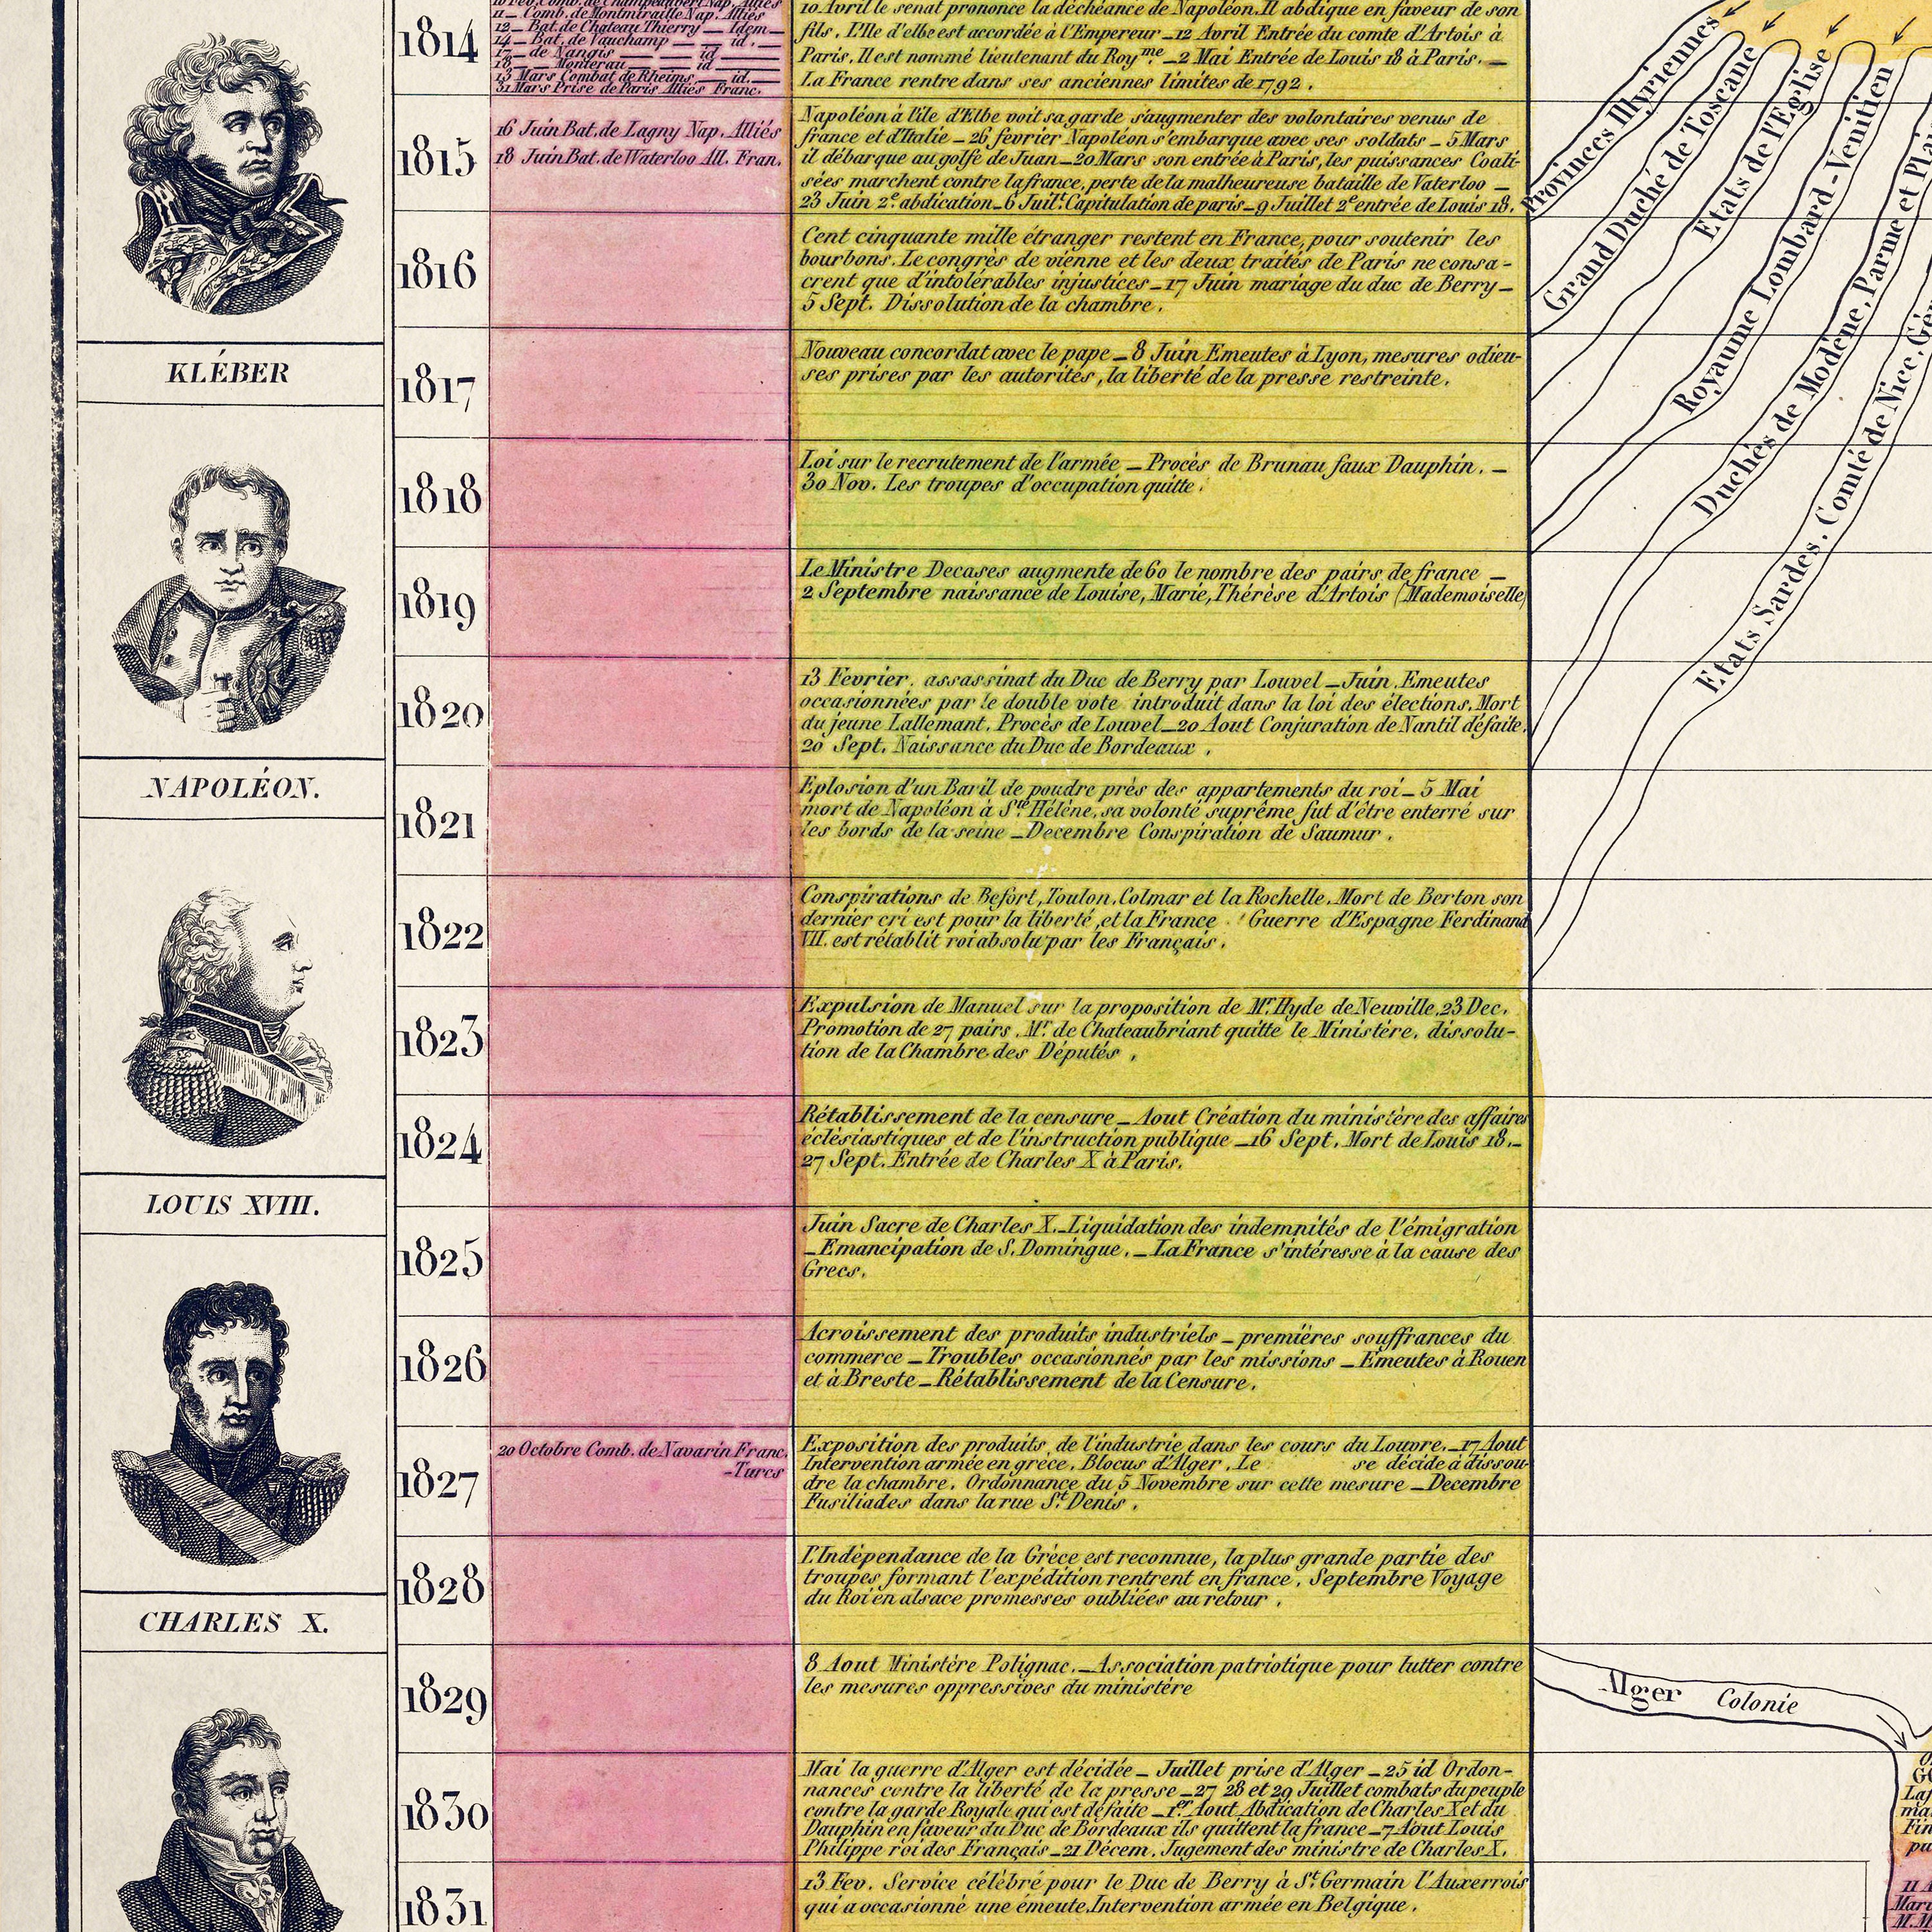 KLÉBER
NAPOLÉON.
LOUIS XVIII.
CHARLES X.
1814
11 _ Comb. de Montmiraille Nap. Alliés
12 _ Bat. de Chateau Thierry _ Idem _
14 _ Bat. de Vauchamp _ id. _
17 _ de Nangis _ id _
18 _ _ Monterau _ id _
13 Mars Combat de Rheims _ id. _
31 Mars Prise de Paris Alliés Franc.
10 Avril le senat prononce la déchéance de Napoléon. Il abdique en faveur de son
fils. L'Ile d'elbe est accordée à l'Empereur _ 12 Avril Entrée du comte d'Artois à
Paris. Il est nommé lieutenant du Roy.me _ 2 Mai Entrée de Louis 18 à Paris. _
La France rentre dans ses anciennes limites de 1792.
1815
16 Juin Bat. de Lagny Nap. Alliés
18 Juin Bat. de Waterloo All. Fran.
Napoléon à l'île d'Elbe voit sa garde s'augmenter des volontaires venus de
france et d'Italie _ 26 fevrier Napoléon s'embarque avec ses soldats _ 5 Mars
il débarque au golfe de Juan _ 20 Mars son entrée à Paris, les puissances Coali-
sées marchent contre la france, perte de la malheureuse bataille de Vaterloo _
23 Juin 2e. abdication _ 6 Juilt. Capitulation de paris _ 9 Juillet 2e entrée de Louis 18.
1816
Cent cinquante mille étranger restent en France, pour soutenir les
bourbons. Le congrès de vienne et les deux traités de Paris ne consa-
crent que d'intolérables injustices _ 17 Juin mariage du duc de Berry _
5 Sept. Dissolution de la chambre.
1817
Nouveau concordat avec le pape _ 8 Juin Emeutes à Lyon, mesures odieu-
ses prises par les autorités, la liberté de la presse restreinte.
1818
Loi sur le recrutement de l'armée _ Procès de Brunau faux Dauphin. _
30 Nov. Les troupes d'occupation quitte.
1819
Le Ministre Decases augmente de 60 le nombre des pairs de france _
2 Septembre naissance de Louise, Marie, Thérèse d'Artois (Mademoiselle)
1820
13 Fevrier. assassinat du Duc de Berry par Louvel _ Juin. Emeutes
occasionnées par le double vote introduit dans la loi des élections. Mort
du jeune Lallemant. Procès de Louvel _ 20 Aout Conjuration de Nantil défaite.
20 Sept. Naissance du Duc de Bordeaux.
1821
Eplosion d'un Baril de poudre près des appartements du roi _ 5 Mai
mort de Napoléon à Ste Hélène, sa volonté suprême fut d'être enterré sur
les bords de la seine _ Decembre Conspiration de Saumur.
1822
Conspirations de Befort, Toulon, Colmar et la Rochelle. Mort de Berton son
dernier cri est pour la liberté, et la France. ! Guerre d'Espagne Ferdinand
VII. est rétablit roi absolu par les Français.
1823
Expulsion de Manuel sur la proposition de Mr. Hyde de Neuville. 23 Dec.
Promotion de 27 pairs. Mr. de Chateaubriant quitte le Ministère, dissolu-
tion de la Chambre des Députés.
1824
Rétablissement de la censure _ Aout Création du ministère des affaires
éclésiastiques et de l'instruction publique _ 16 Sept. Mort de Louis 18. _
27 Sept. Entrée de Charles X à Paris.
1825
Juin Sacre de Charles X. _ Liquidation des indemnités de l'émigration
_ Emancipation de S. Domingue. _ La France s'intéresse à la cause des
Grecs.
1826
Acroissement des produits industriels _ premières souffrances du
commerce _ Troubles occasionnés par les missions _ Emeutes à Rouen
et à Breste _ Rétablissement de la Censure.
1827
20 Octobre Comb. de Navarin Franc.
-Turcs
Exposition des produits, de l'industrie dans les cours du Louvre. _ 17 Aout
Intervention armée en grèce. Blocus d'Alger. Le se décide à dissou-
dre la chambre. Ordonnance du 5 Novembre sur cette mesure _ Decembre
Fusiliades dans la rue St. Denis.
1828
L'Indépendance de la Grèce est reconnue, la plus grande partie des
troupes formant l'expédition rentrent en france. Septembre Voyage
du Roi en alsace promesses oubliées au retour.
1829
8 Aout Ministère Polignac. _ Association patriotique pour lutter contre
les mesures oppressives du ministère
1830
Mai la guerre d'Alger est décidée _ Juillet prise d'Alger _ 25 id Ordon-
nances contre la liberté de la presse _ 27 28 et 29 Juillet combats du peuple
contre la garde Royale qui est défaite _ 1er. Aout Abdication de Charles X et du
Dauphin en faveur du Duc de Bordeaux ils quittent la france _ 7 Aout Louis
Philippe roi des Français _ 21 Décem. Jugement des ministre de Charles X.
1831
13 Fev. Service célébré pour le Duc de Berry à St Germain l'Auxerrois
qui a occasionné une émeute. Intervention armée en Belgique.
Provinces Illyriennes
Grand Duché de Toscane
Etats de l'Eglise
Royaume Lombard-Vénitien
Duchés de Modène, Parme et
Etats Sardes. Comté de Nice.
Alger Colonie